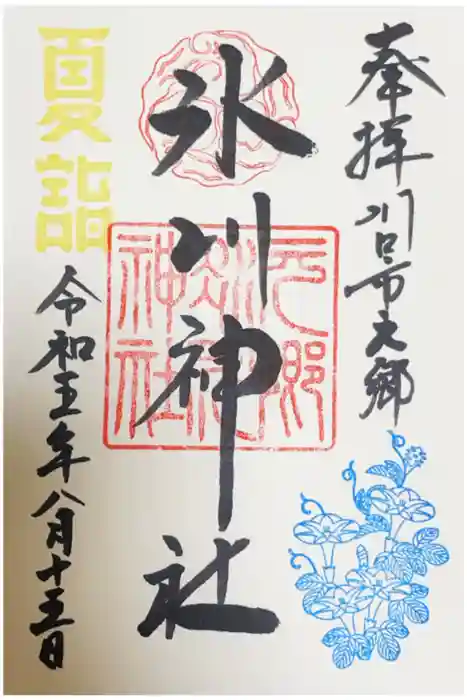 奉拝 川口市元郷
氷川神社
夏詣
令和五年八月十五日
元郷
氷川
神社